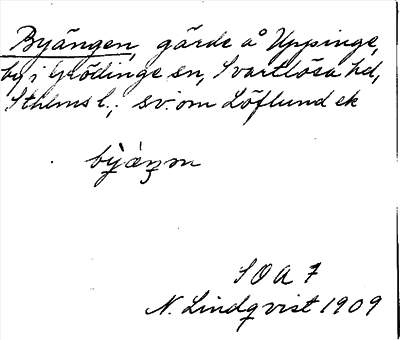 Byängen, gärde å Uppinge,
by i Grödinge sn, Svartlösa hd,
Sthlms l.; sv. om Löflund ek
SOA 7
N. Lindqvist 1909